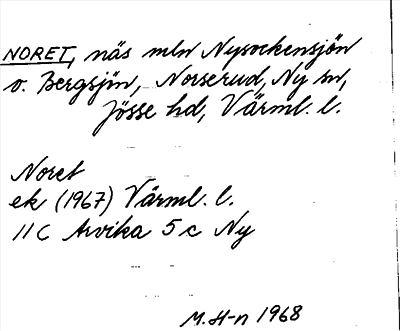 NORET, näs mln Nysockensjön
o. Bergsjön, Norserud, Ny sn,
Jösse hd, Värml. l.
Noret
ek (1967) Värml. l.
11C Arvika 5c Ny
M. H-n 1968